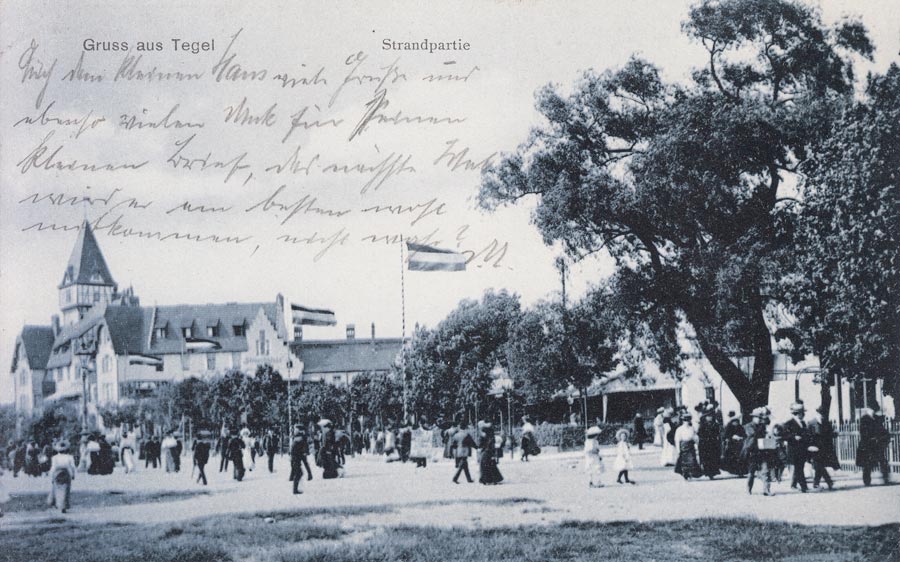 Gruss aus Tegel
Strandpartie
Auch dem kleinen Hans viele Grüße und
ebenso vielen Dank für seinen
kleinen Brief, das nächste Mal
wird er am besten wohl
mitkommen, nicht wahr?